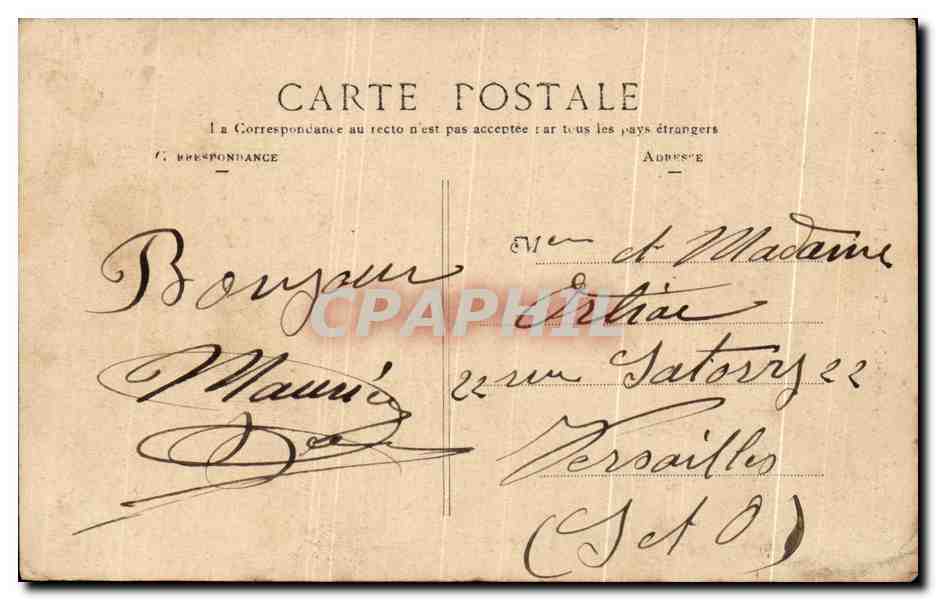 CARTE POSTALE
La Correspondance au recto n'est pas acceptée par tous les pays étrangers
CORRESPONDANCE
ADRESSE
Bonjour
Maurice
Mr et Madame
22 rue Satory 22
Versailles
(S et O)
CPAPHIL